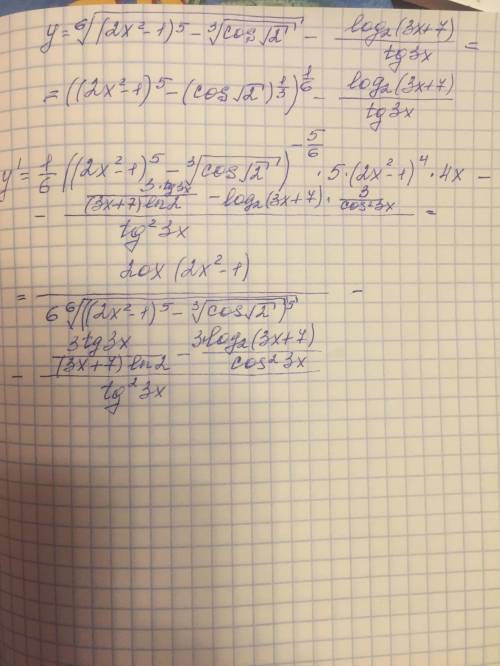 y = ⁶√((2x²-1)⁵ - ³√(cos√2)) - log₂(3x+7)/tg3x =
= ((2x²-1)⁵ - (cos√2)^(1/3))^(1/6) - log₂(3x+7)/tg3x
y' = 1/6 ((2x²-1)⁵ - ³√(cos√2))^(-5/6) · 5·(2x²-1)⁴ · 4x -
- (3·tg3x/((3x+7)ln2) - log₂(3x+7) · 3/cos²3x)/tg²3x =
= 20x(2x²-1)/(6 ⁶√((2x²-1)⁵ - ³√(cos√2))⁵) -
- (3tg3x/((3x+7)ln2) - 3log₂(3x+7)/cos²3x)/tg²3x